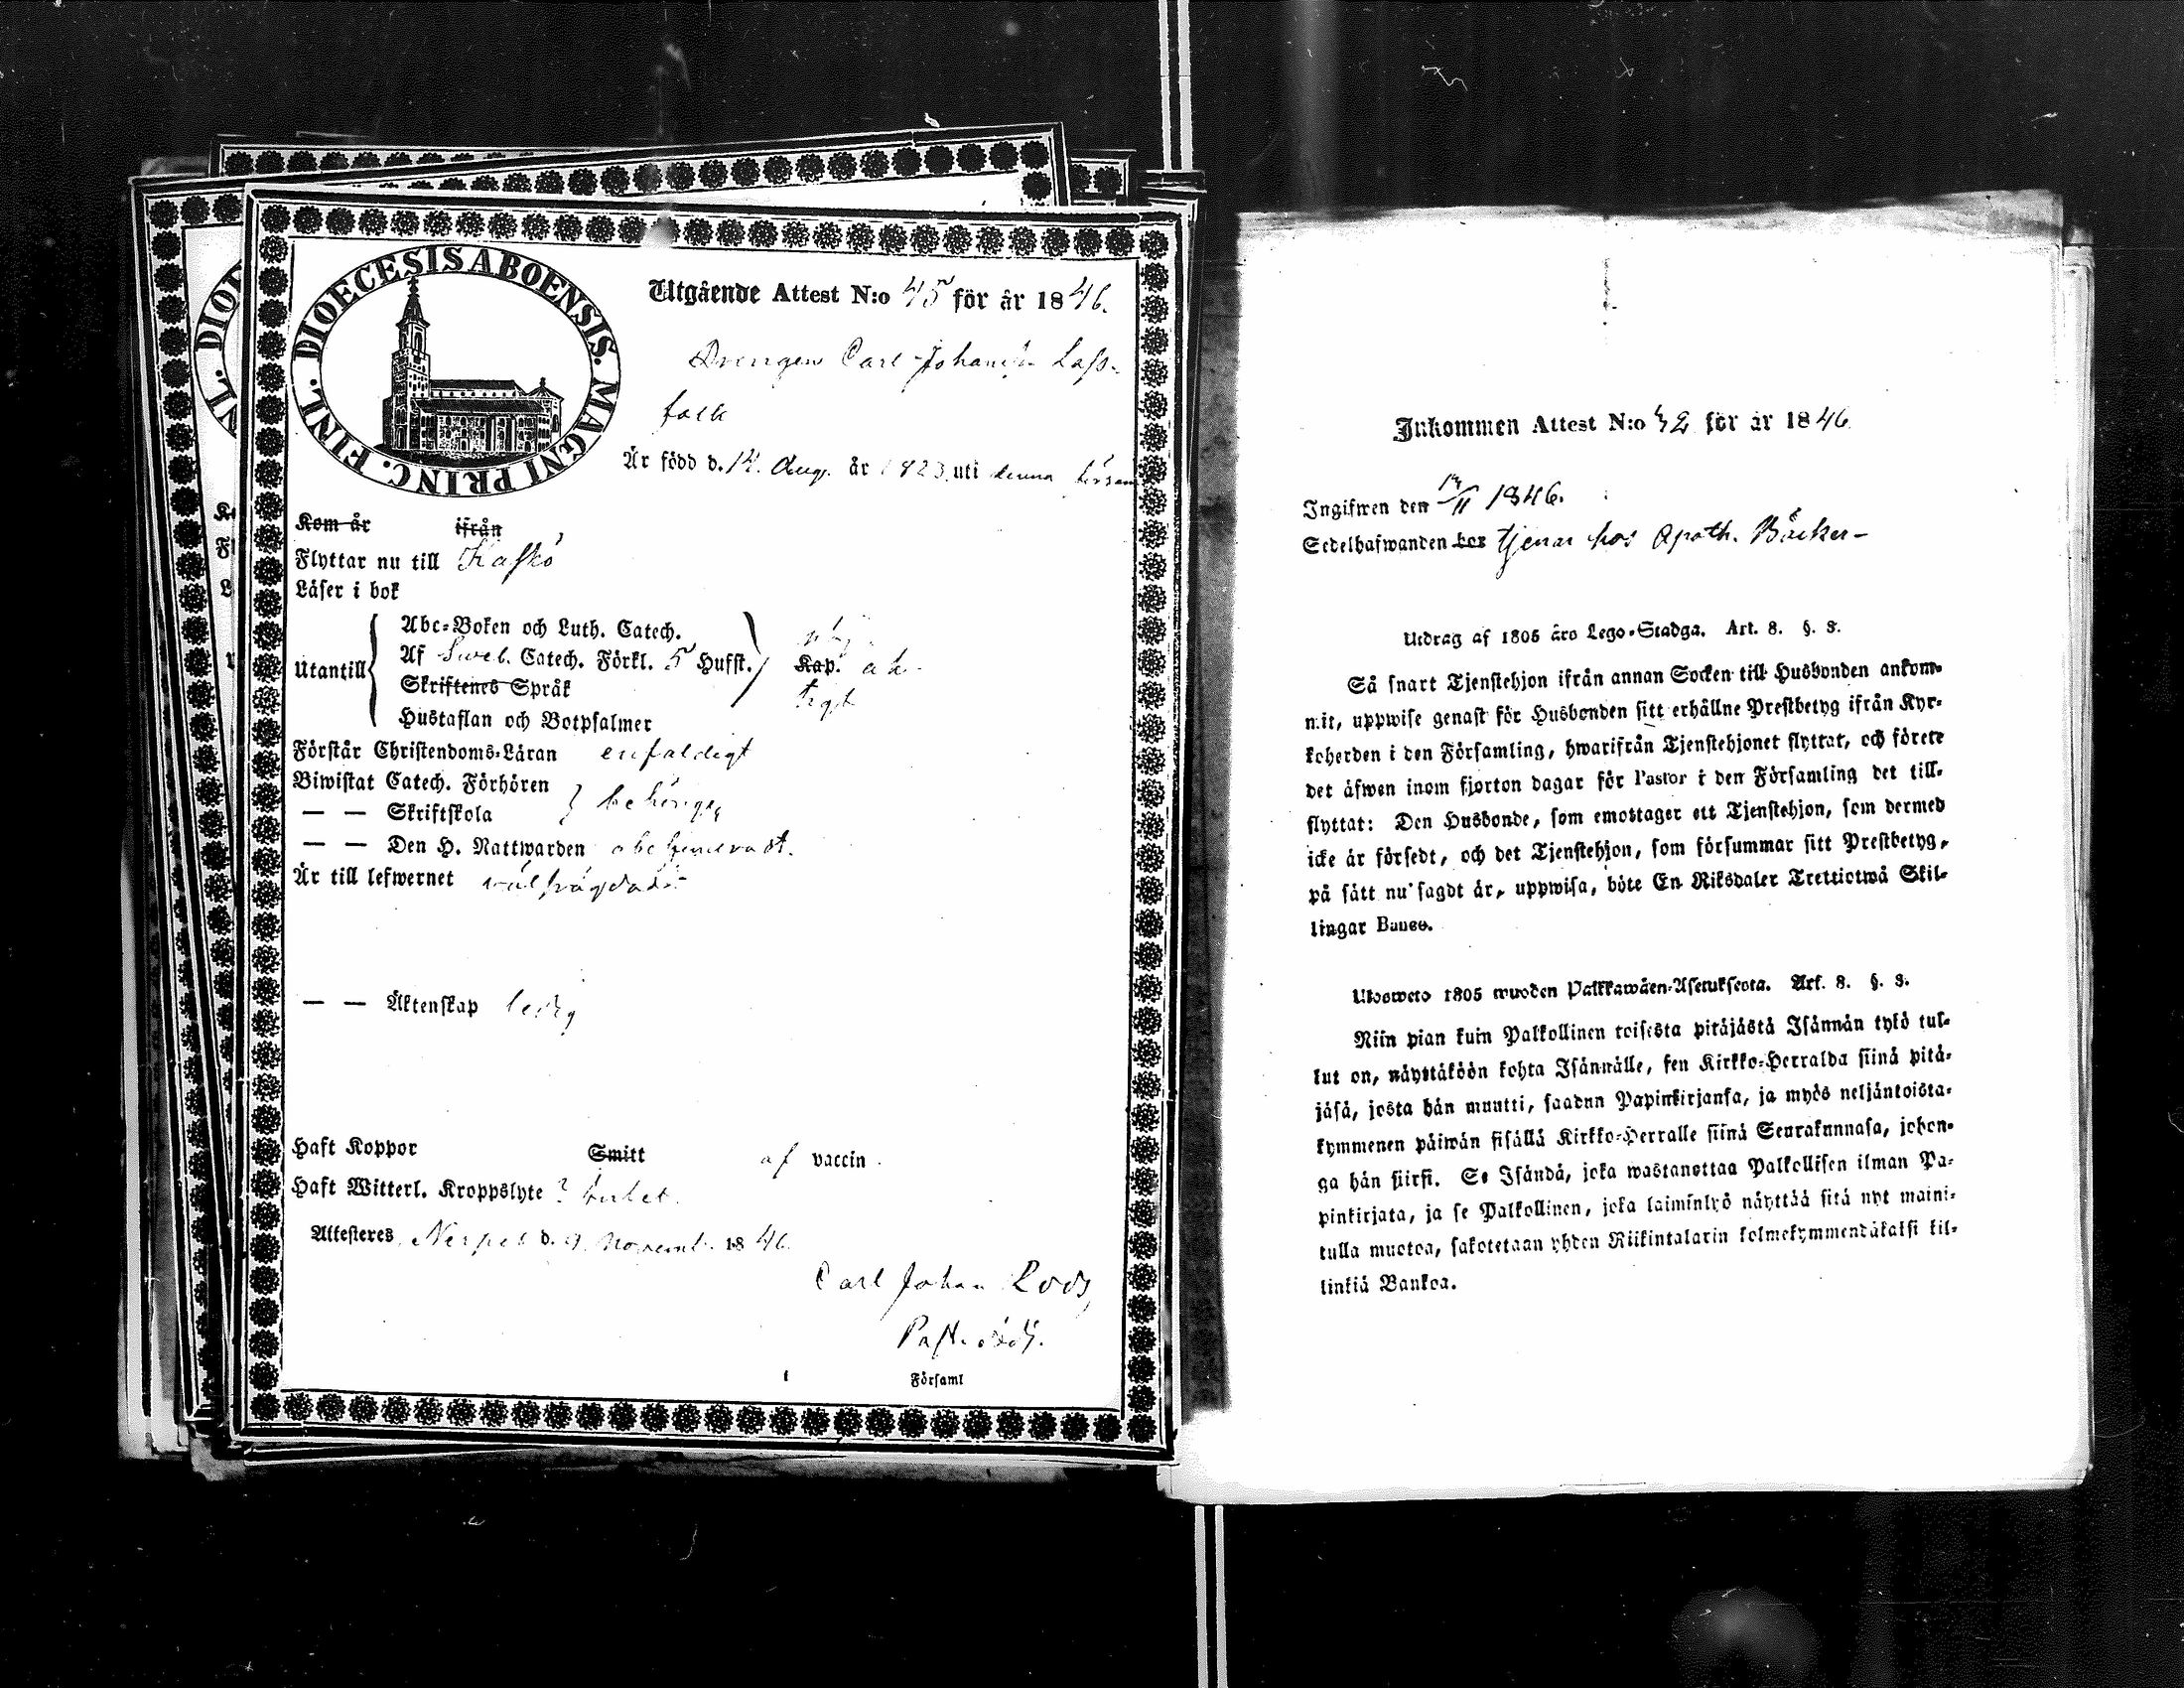 DIOECESIS ABOENSIS. MAGNI PRINC. FINL.
Utgående Attest N:o 45 för år 1846.
Drengen Carl Johan Lass-
falk
Är född d. 14. Aug. år 1823 uti denna församl
Kom år ifrån
Flyttar nu till Kaskö
Läser i bok
Utantill
Abc-Boken och Luth. Catech.
Af Sweb. Catech. Förkl. 5 Hufst. Kap.
Skriftenes Språk
Hustaflan och Botpsalmer
Förstår Christendoms-Läran enfaldigt
Biwistat Catech. Förhören
— — Skriftskola behörigen
— — Den H. Nattwarden obehindradt.
Är till lefwernet välfrägdad
— — Äktenskap ledig
Haft Koppor Smitt af vaccin.
Haft Witterl. Kroppslyte? Intet.
Attesteres Nerpes d. 9. Novemb. 1846.
Carl Johan Roos,
Församl
Inkommen Attest N:o 42 för år 1846
Ingifwen den 14/11 1846.
Sedelhafwanden bor tjenar hos Apoth. Bäcker-
Utdrag af 1805 års Lego-Stadga. Art. 8. §. 8.
Så snart Tjenstehjon ifrån annan Socken till Husbonden ankom-
mit, uppwise genast för Husbonden sitt erhållne Prestbetyg ifrån Kyr-
koherden i den Församling, hwarifrån Tjenstehjonet flyttat, och förete
det äfwen inom fjorton dagar för Pastor i den Församling det till-
flyttat: Den Husbonde, som emottager ett Tjenstehjon, som dermed
icke är försedt, och det Tjenstehjon, som försummar sitt Prestbetyg,
på sätt nu sagdt är, uppwisa, böte En Riksdaler Trettiotwå Skil-
lingar Banco.
Ulosweto 1805 wuoden Palkkawäen-Asetuksesta. Art. 8. §. 8.
Niin pian kuin Palkollinen toisesta pitäjästä Isännän tykö tul-
lut on, näyttäköön kohta Isännälle, sen Kirkko-Herralda siinä pitä-
jäsä, josta hän muutti, saadun Papinkirjansa, ja myös neljäntoista-
kymmenen päiwän sisällä Kirkko-Herralle siinä Seurakunnasa, johon-
ga hän siirsi. Se Isändä, joka wastanottaa Palkollisen ilman Pa-
pinkirjata, ja se Palkollinen, joka laiminlyö näyttää sitä nyt maini-
tulla muotoa, sakotetaan yhden Riikintalarin kolmekymmendäkaksi kil-
linkiä Bankoa.